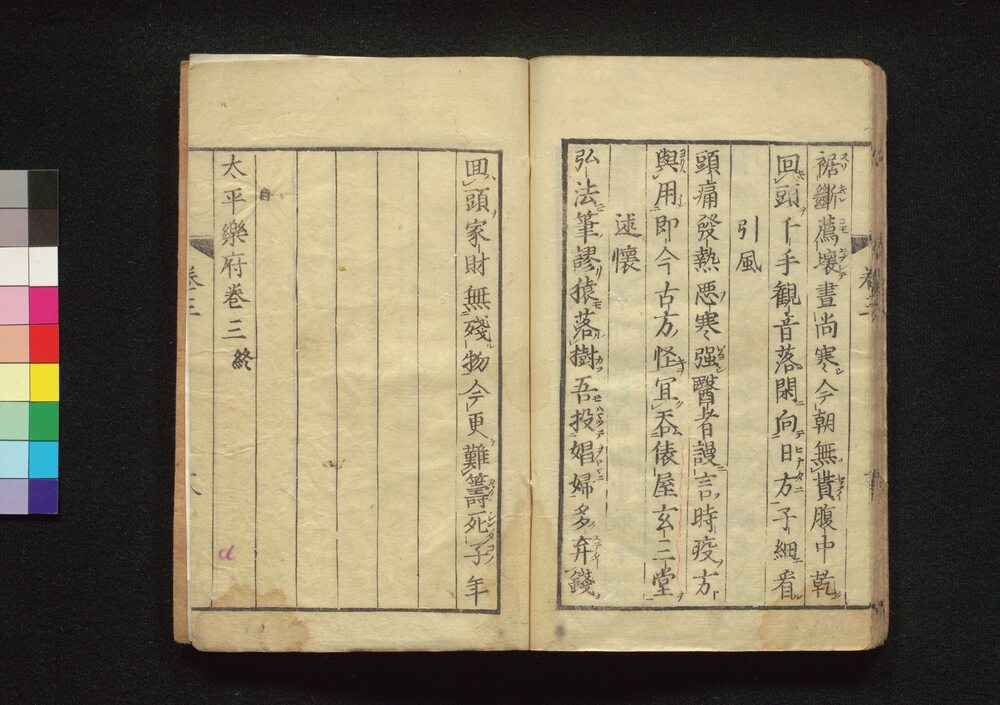 裾斷薦壞晝尚寒今朝無貰腹中乾
回頭千手観音落閑向日方子細看
引風
頭痛發熱悪寒强醫者謾言時疫方
與用即今古方怪冝呑俵屋玄三堂
述懷
弘法筆謬猿落樹吾投娼婦多弃錢
回頭家財無殘物今更難籌死子年
太平樂府卷三終
卷三